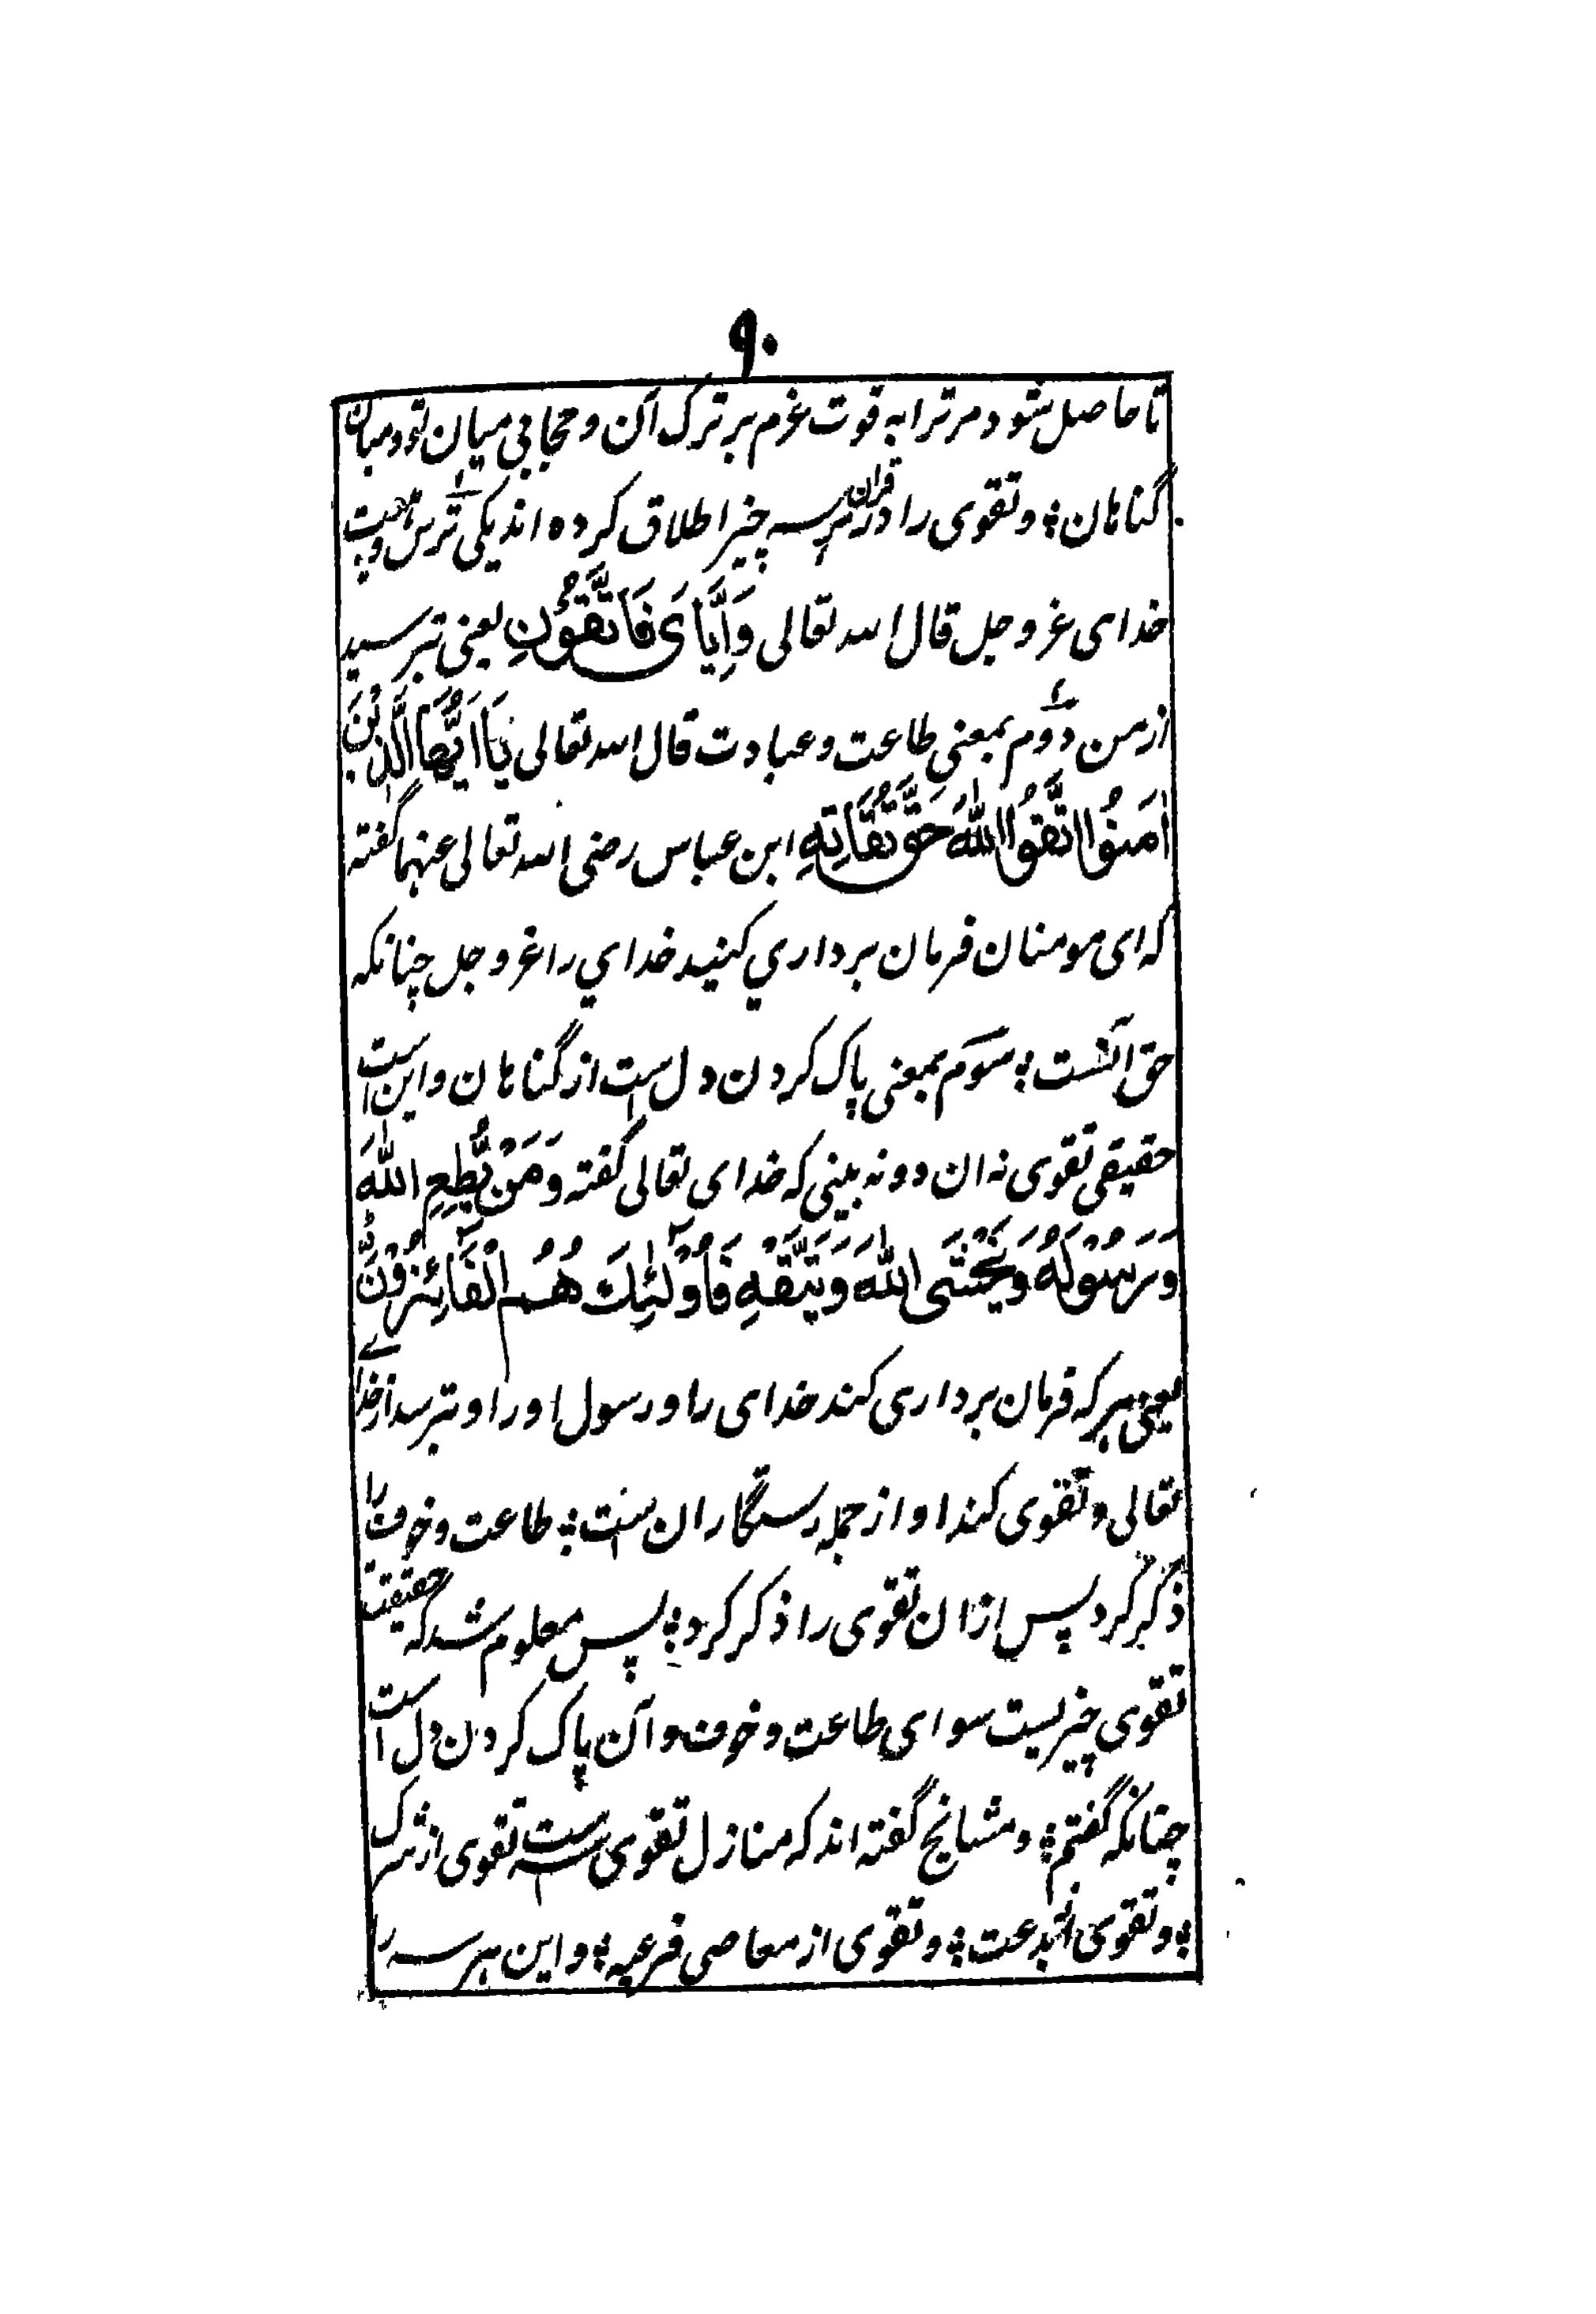 ۹۰
تا حاصل شود مر ترا به قوت عزم بر ترک آن و حجابی میان تو و میان
گناهان ؛ و تقوی را در قران بر سه چیز اطلاق کرده اند یکی ترس و هیبت
خدای عز و جل قال الله تعالی وَاِیَّایَ فَاتَّقُوْنِ یعنی بترسید
از من دوم بمعنی طاعت و عبادت قال الله تعالی یَا اَیُّهَا الَّذِیْنَ
اٰمَنُوا اتَّقُوا اللّٰهَ حَقَّ تُقَاتِهِ ابن عباس رضی الله تعالی عنهما گفته
که ای مومنان فرمان برداري کنید خداي را عز و جل چنانکه
حق آنست ؛ سوم بمعنی پاک کردن دل است از گناهان و این است
حقیقی تقوی نه ان دو نه بینی که خدای تعالی گفته وَمَنْ یُّطِعِ اللّٰهَ
وَرَسُوْلَهُ وَیَخْشَی اللّٰهَ وَیَتَّقْهِ فَاُوْلٰئِكَ هُمُ الْفَائِزُوْنَ
یعنی هر که فرمان برداری کند خدای را و رسول او را و بترسد از خدای
تعالی و تقوی کند او از جمله رستگاران است ؛ طاعت و خوف را
ذکر کرد پس ازان تقوی را ذکر کرد ؛ پس معلوم شد که حقیقت
تقوی چیزیست سوای طاعت و خوف و آن پاک کردن دل است
چنانکه گفتم ؛ و مشایخ گفته اند که منازل تقوی سه است تقوی از شرک
؛ و تقوی از بدعت ؛ و تقوی از معاصی فرعیه ؛ و این هر سه را